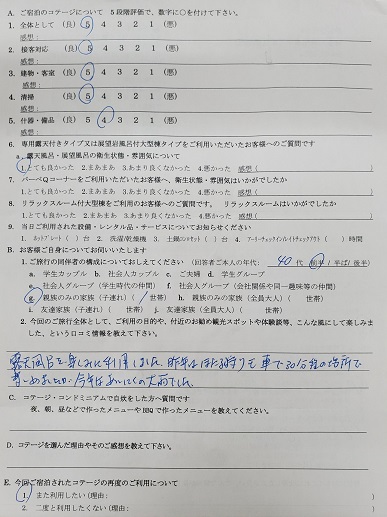 A. ご宿泊のコテージについて 5段階評価で、数字に○を付けて下さい。
1. 全体として (良) 5 4 3 2 1 (悪)
感想:
2. 接客対応 (良) 5 4 3 2 1 (悪)
感想:
3. 建物・客室 (良) 5 4 3 2 1 (悪)
感想:
4. 清掃 (良) 5 4 3 2 1 (悪)
感想:
5. 什器・備品 (良) 5 4 3 2 1 (悪)
感想:
6. 専用露天付きタイプ又は展望岩風呂付大型棟タイプをご利用いただいたお客様へのご質問です
a. 露天風呂・展望風呂の衛生状態・雰囲気について
1.とても良かった 2.まあまあ 3.あまり良くなかった 4.悪かった 感想( )
7. バーベQコーナーをご利用いただいたお客様へ、衛生状態・雰囲気はいかがでしたか
1.とても良かった 2.まあまあ 3.あまり良くなかった 4.悪かった 感想( )
8. リラックスルーム付大型棟をご利用のお客様へのご質問です。 リラックスルームはいかがでしたか
1.とても良かった 2.まあまあ 3.あまり良くなかった 4.悪かった 感想( )
9. 当日利用された設備・レンタル品・サービスについてお知らせください
1. ホットプレート( )台 2. 洗濯/乾燥機 3. 土鍋コンロセット( )台 4. アーリーチェックイン/レイトチェックアウト( )時間
B. お客様ご自身についてお伺いいたします
1. ご旅行の同伴者の構成についておしえてください (回答者ご本人の年代: 40代 前半 / 半ば / 後半)
a. 学生カップル b. 社会人カップル c. ご夫婦 d. 学生グループ
e. 社会人グループ(学生時代の仲間) f. 社会人グループ(会社関係や同一趣味等の仲間)
g. 親族のみの家族(子連れ)( / 世帯) h. 親族のみの家族(全員大人)( 世帯)
i. 友達家族(子連れ)( 世帯) j. 友達家族(全員大人)( 世帯)
2. 今回のご旅行全体として、ご利用の目的や、付近のお勧め観光スポットや体験談等、こんな風にして楽しみました、という口コミ情報を教えて下さい。
露天風呂を楽しみに利用しました。昨年はほたる狩りも車で30分程の場所で
楽しめましたが、今年はあいにくの大雨でした。
C. コテージ・コンドミニアムで自炊をした方へ質問です
夜、朝、昼などで作ったメニューやBBQで作ったメニューを教えてください。
D. コテージを選んだ理由やそのご感想を教えて下さい。
E. 今回ご宿泊されたコテージの再度のご利用について
1. また利用したい(理由: )
2. 二度と利用したくない(理由: )